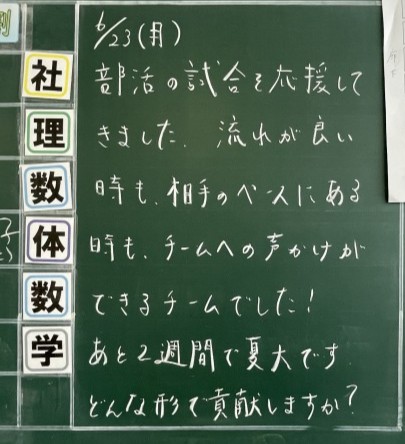 6/23(月)
部活の試合を応援して
きました。流れが良い
時も、相手のペースにある
時も、チームへの声かけが
できるチームでした!
あと2週間で夏大です
どんな形で貢献しますか?
社
理
数
体
数
学